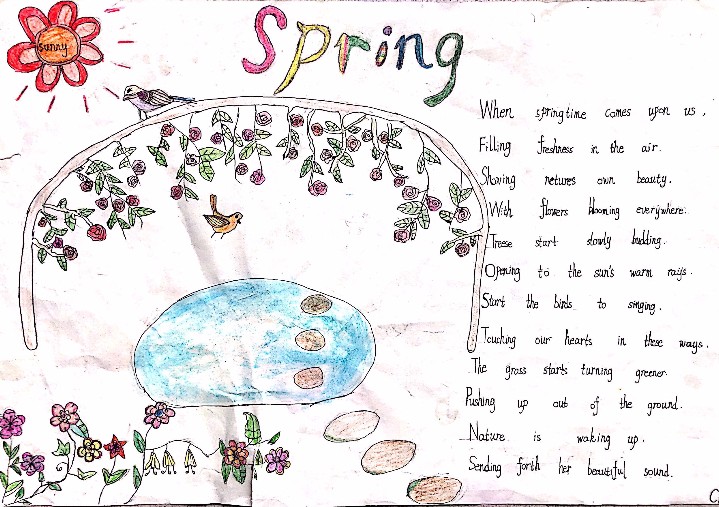 Spring
sunny
When springtime comes upon us,
Filling freshness in the air.
Sharing natures own beauty.
With flowers blooming everywhere.
Treese start slowly budding.
Opening to the sun's warm rays.
Start the birds to singing.
Touching our hearts in these ways.
The grass starts turning greener.
Pushing up out of the ground.
Nature is waking up.
Sending forth her beautiful sound.